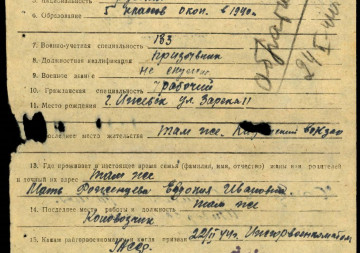 5. Национальность
6. Образование 5 классов окон. в 1940г.
7. Военно-учетная специальность 183
8. Должностная квалификация призывник
9. Военное звание не служил
10. Гражданская специальность рабочий
11. Место рождения г. Ижевск ул. Зарека 11
Последнее место жительства Там же. Казанский вокзал
13. Где проживает в настоящее время семья (фамилия, имя, отчество) жены или родителей
и точный их адрес Там же
Мать Евдокия Ивановна
там же
14. Последнее место работы и должность
Коновозчик
15. Каким райгорвоенкоматом и когда призван 22/II 44г.